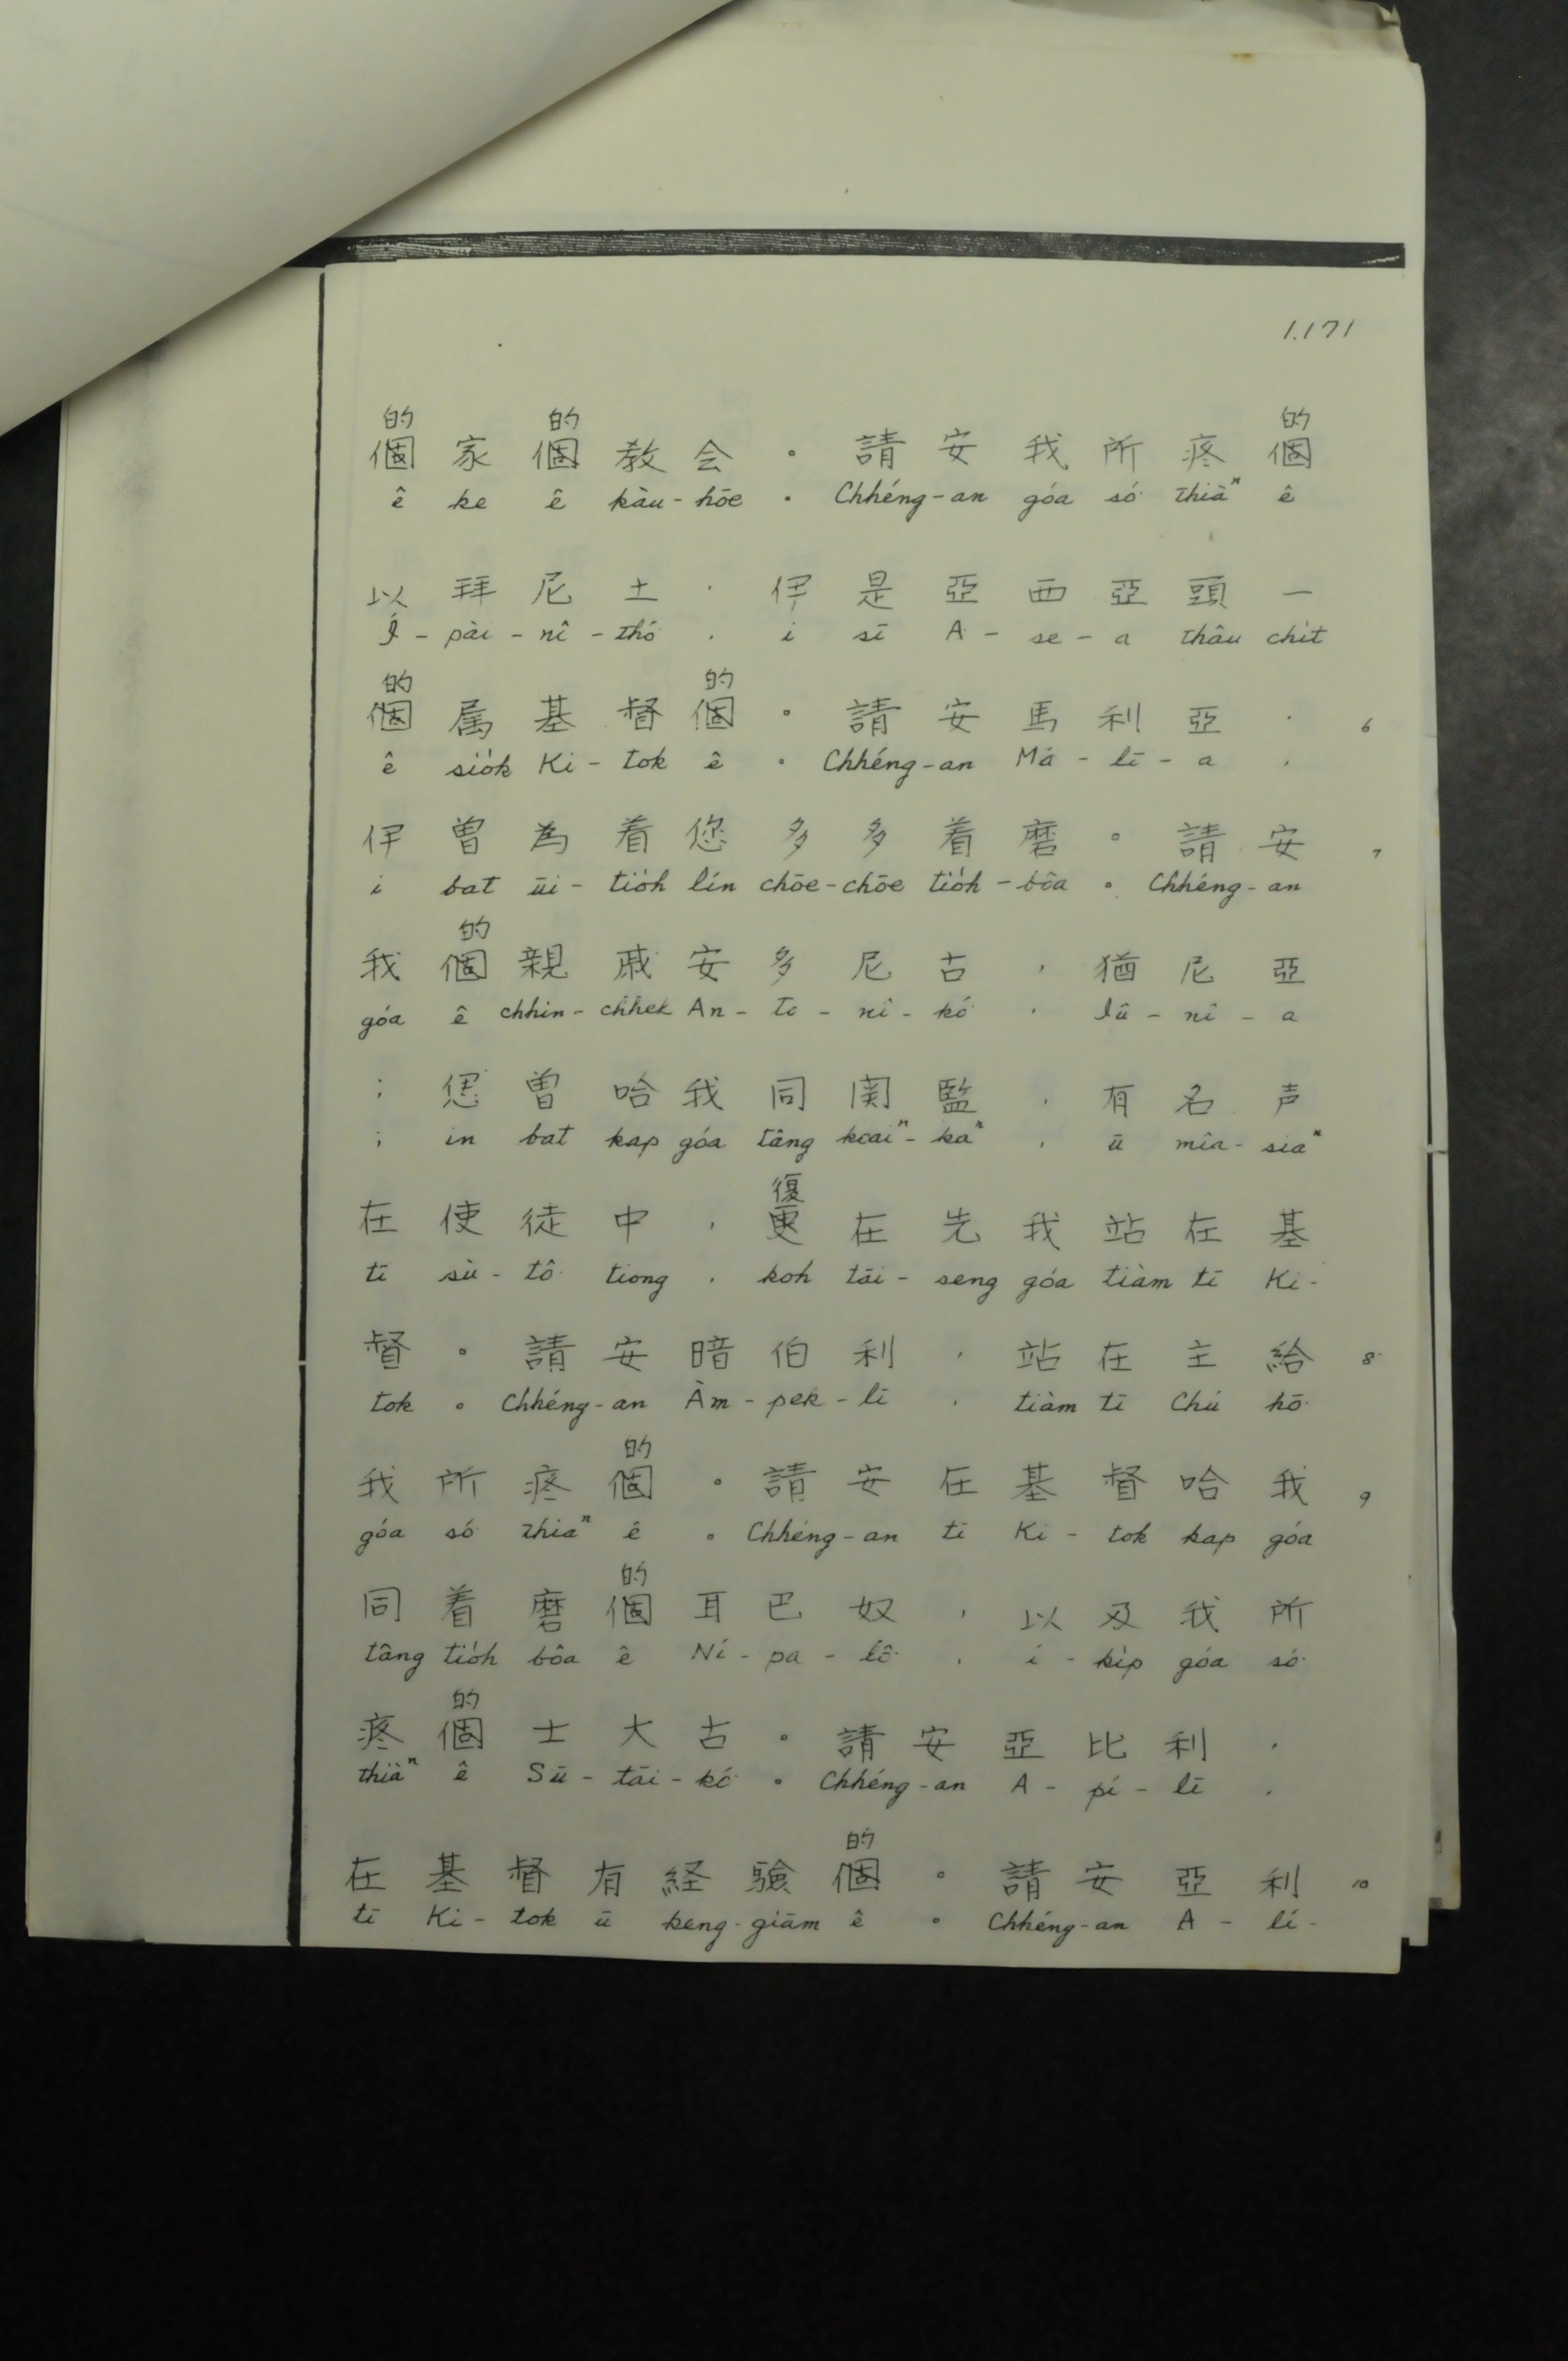 1.171
的 的 的
個 家 個 教 会 。 請 安 我 所 疼 個
ê ke ê kàu-hōe 。 Chhéng-an góa só͘ thiàⁿ ê
以 拜 尼 土 , 伊 是 亞 西 亞 頭 一
Í-pài-nî-thó͘ , i sī A-se-a thâu chi̍t
的 的
個 属 基 督 個 。 請 安 馬 利 亞 , 6
ê sio̍k Ki-tok ê 。 Chhéng-an Má-lī-a ,
伊 曽 為 着 您 多 多 着 磨 。 請 安 7
i bat ūi-tio̍h lín chōe-chōe tio̍h-bôa 。 Chhéng-an
的
我 個 親 戚 安 多 尼 古 , 猶 尼 亞
góa ê chhin-chhek An-to-nî-kó͘ , Iû-nî-a
; 𪜶 曽 哈 我 同 関 監 , 有 名 声
; in bat kap góa tâng koaiⁿ-kaⁿ , ū mîa-siaⁿ
復
在 使 徒 中 , 更 在 先 我 站 在 基
tī sù-tô͘ tiong , koh tāi-seng góa tiàm tī Ki-
督 。 請 安 暗 伯 利 , 站 在 主 給 8
tok 。 Chhéng-an Àm-pek-lī , tiàm tī Chú hō͘
的
我 所 疼 個 。 請 安 在 基 督 哈 我 9
góa só͘ thiaⁿ ê 。 Chhéng-an tī Ki-tok kap góa
的
同 着 磨 個 耳 巴 奴 , 以 及 我 所
tâng tio̍h bôa ê Ní-pa-lô͘ , í-ki̍p góa só͘
的
疼 個 士 大 古 。 請 安 亞 比 利 ,
thiàⁿ ê Sū-tāi-kó͘ 。 Chhéng-an A-pí-lī ,
的
在 基 督 有 経 験 個 。 請 安 亞 利 10
tī Ki-tok ū keng-giām ê 。 Chhéng-an A-lí-